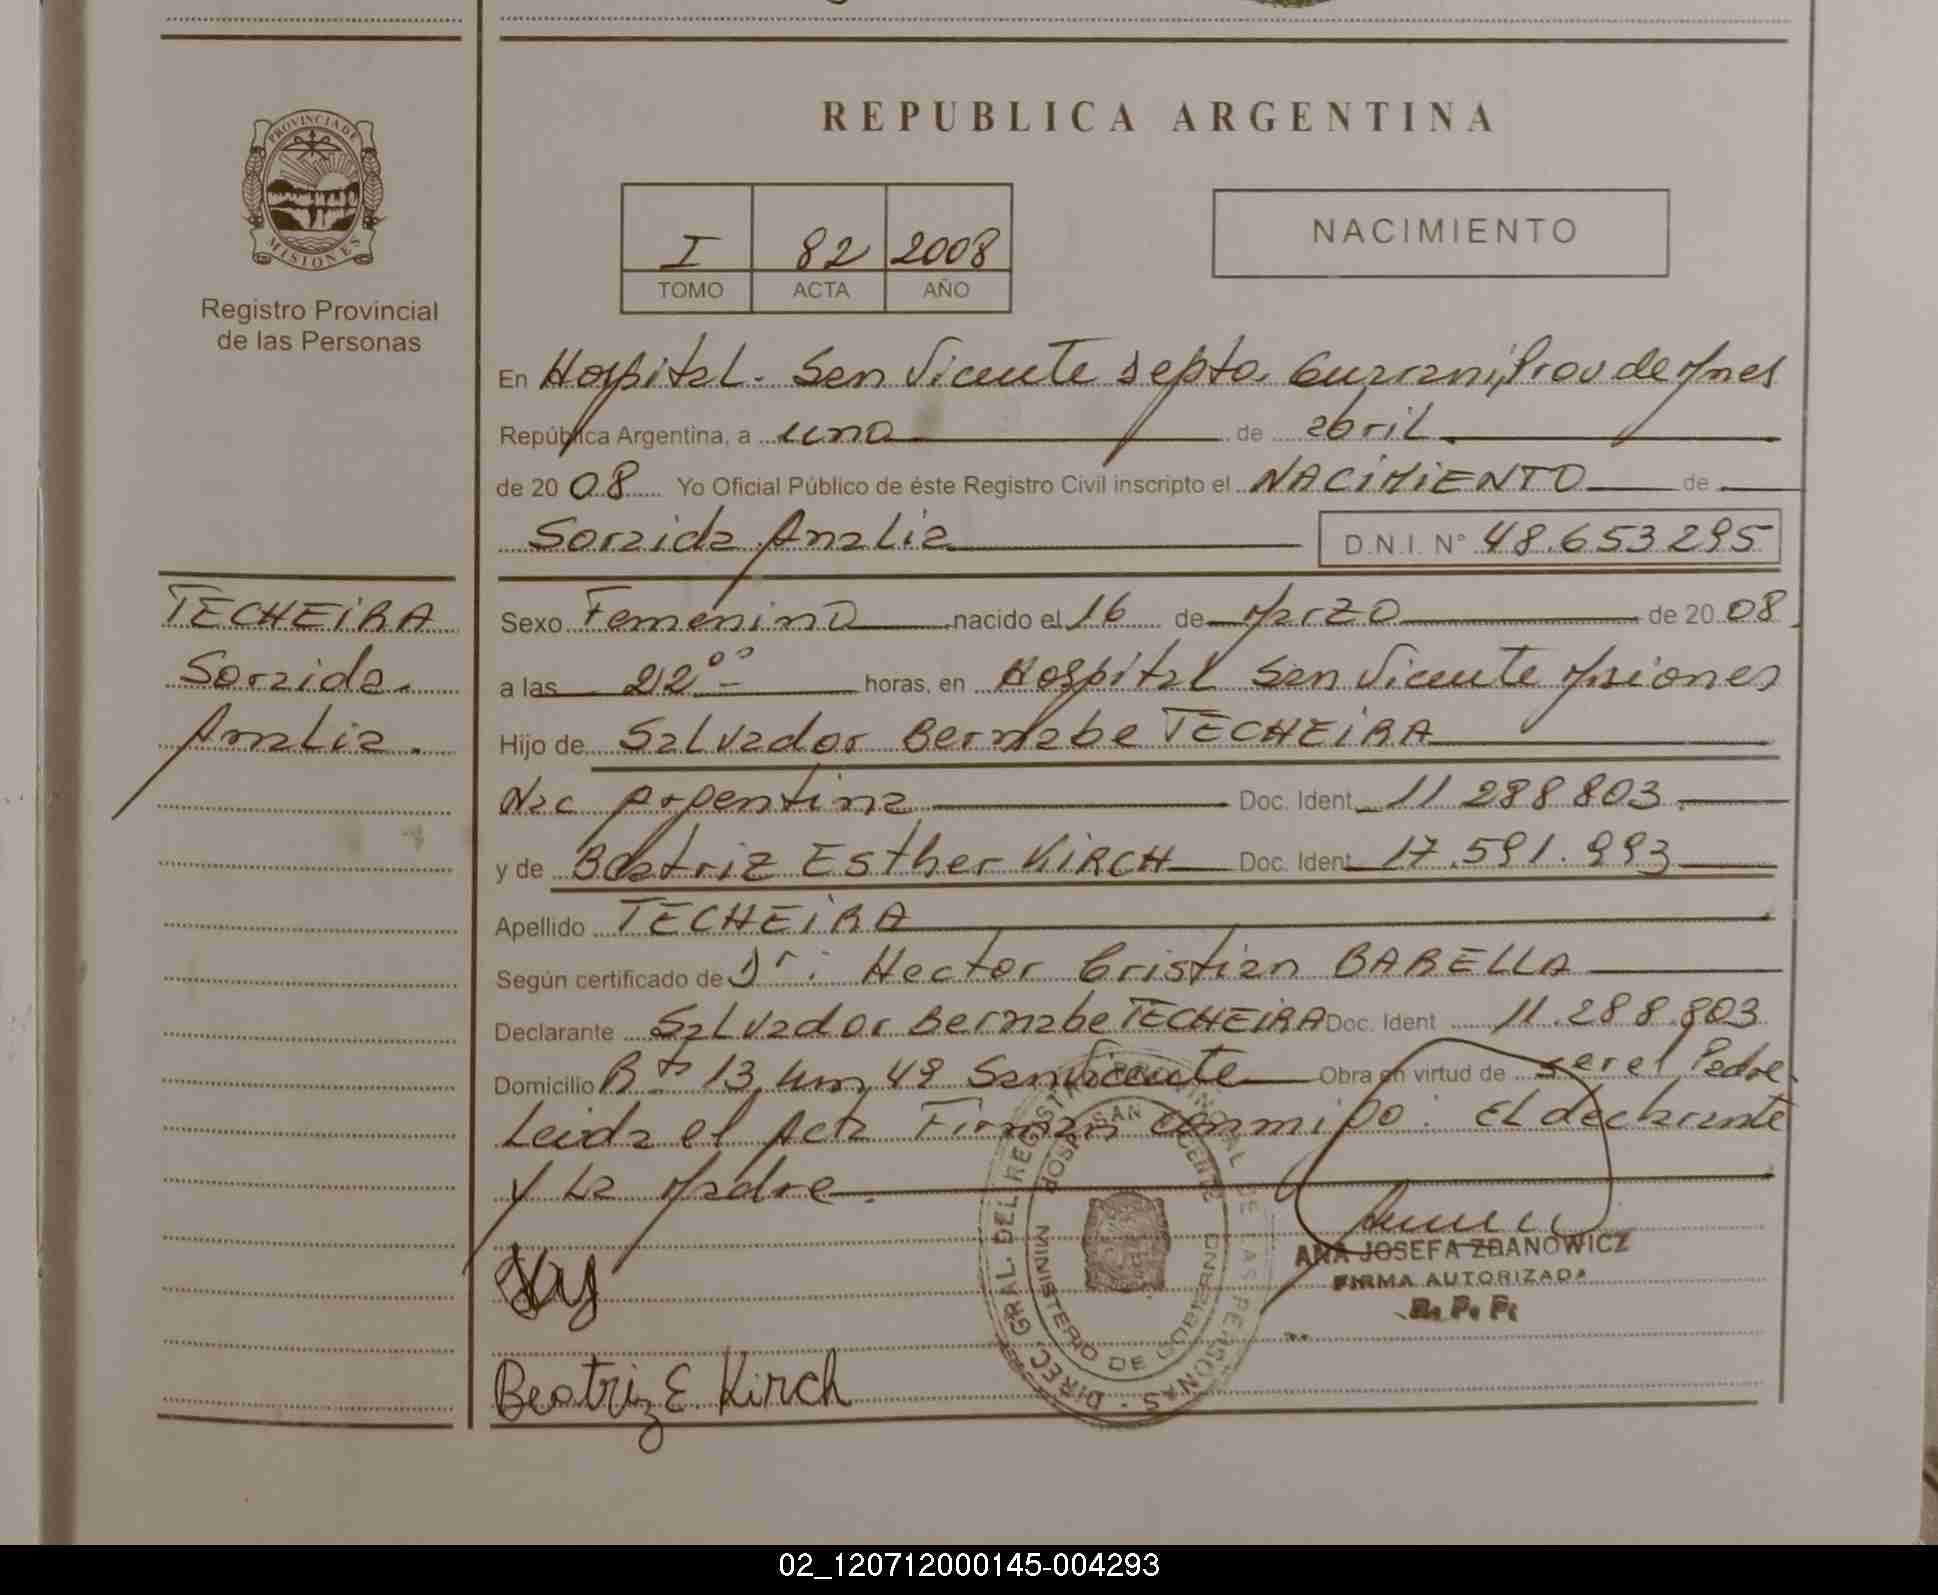 REPUBLICA ARGENTINA
PROVINCIA DE
MISIONES
Registro Provincial
de las Personas
I 82 2008
TOMO ACTA AÑO
NACIMIENTO
En Hospital. San Vicente Depto. Guarani, Prov de Mnes
República Argentina, a uno de abril
de 2008 Yo Oficial Público de éste Registro Civil inscripto el NACIMIENTO de
Soraida Analia D.N.I. N° 48.653295
TECHEIRA
Soraida.
Analia.
Sexo Femenino nacido el 16 de Marzo de 2008
a las 22°° horas, en Hospital San Vicente Misiones
Hijo de Salvador Bernabe TECHEIRA
Nac Argentina Doc. Ident. 11 288 803.
y de Beatriz Esther KIRCH Doc. Ident. 17.591.993
Apellido TECHEIRA
Según certificado de Dr: Hector Cristian BARELLA
Declarante Salvador Bernabe TECHEIRA Doc. Ident 11.288.803
Domicilio Rta 13, km 48 San Vicente Obra en virtud de ser el Padre
Leida el Acta Firman conmigo: El declarante
y La Madre.
DIREC. GRAL. DEL REGISTRO PROVINCIAL DE LAS PERSONAS
HOSP. SAN VICENTE
MINISTERIO DE GOBIERNO
ANA JOSEFA ZDANOWICZ
FIRMA AUTORIZADA
R. P. P.
Beatriz E. Kirch
02_120712000145-004293